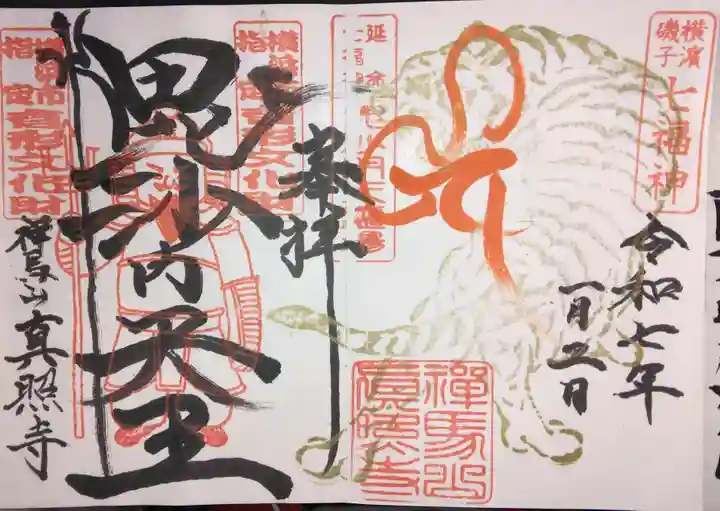 横濱
磯子
七福神
令和七年
一月五日
奉拝
毘沙門天王
禅馬山
真照寺
横浜市
指定
有形文化財
横浜市
指定
有形文化財
禪馬山
真照寺